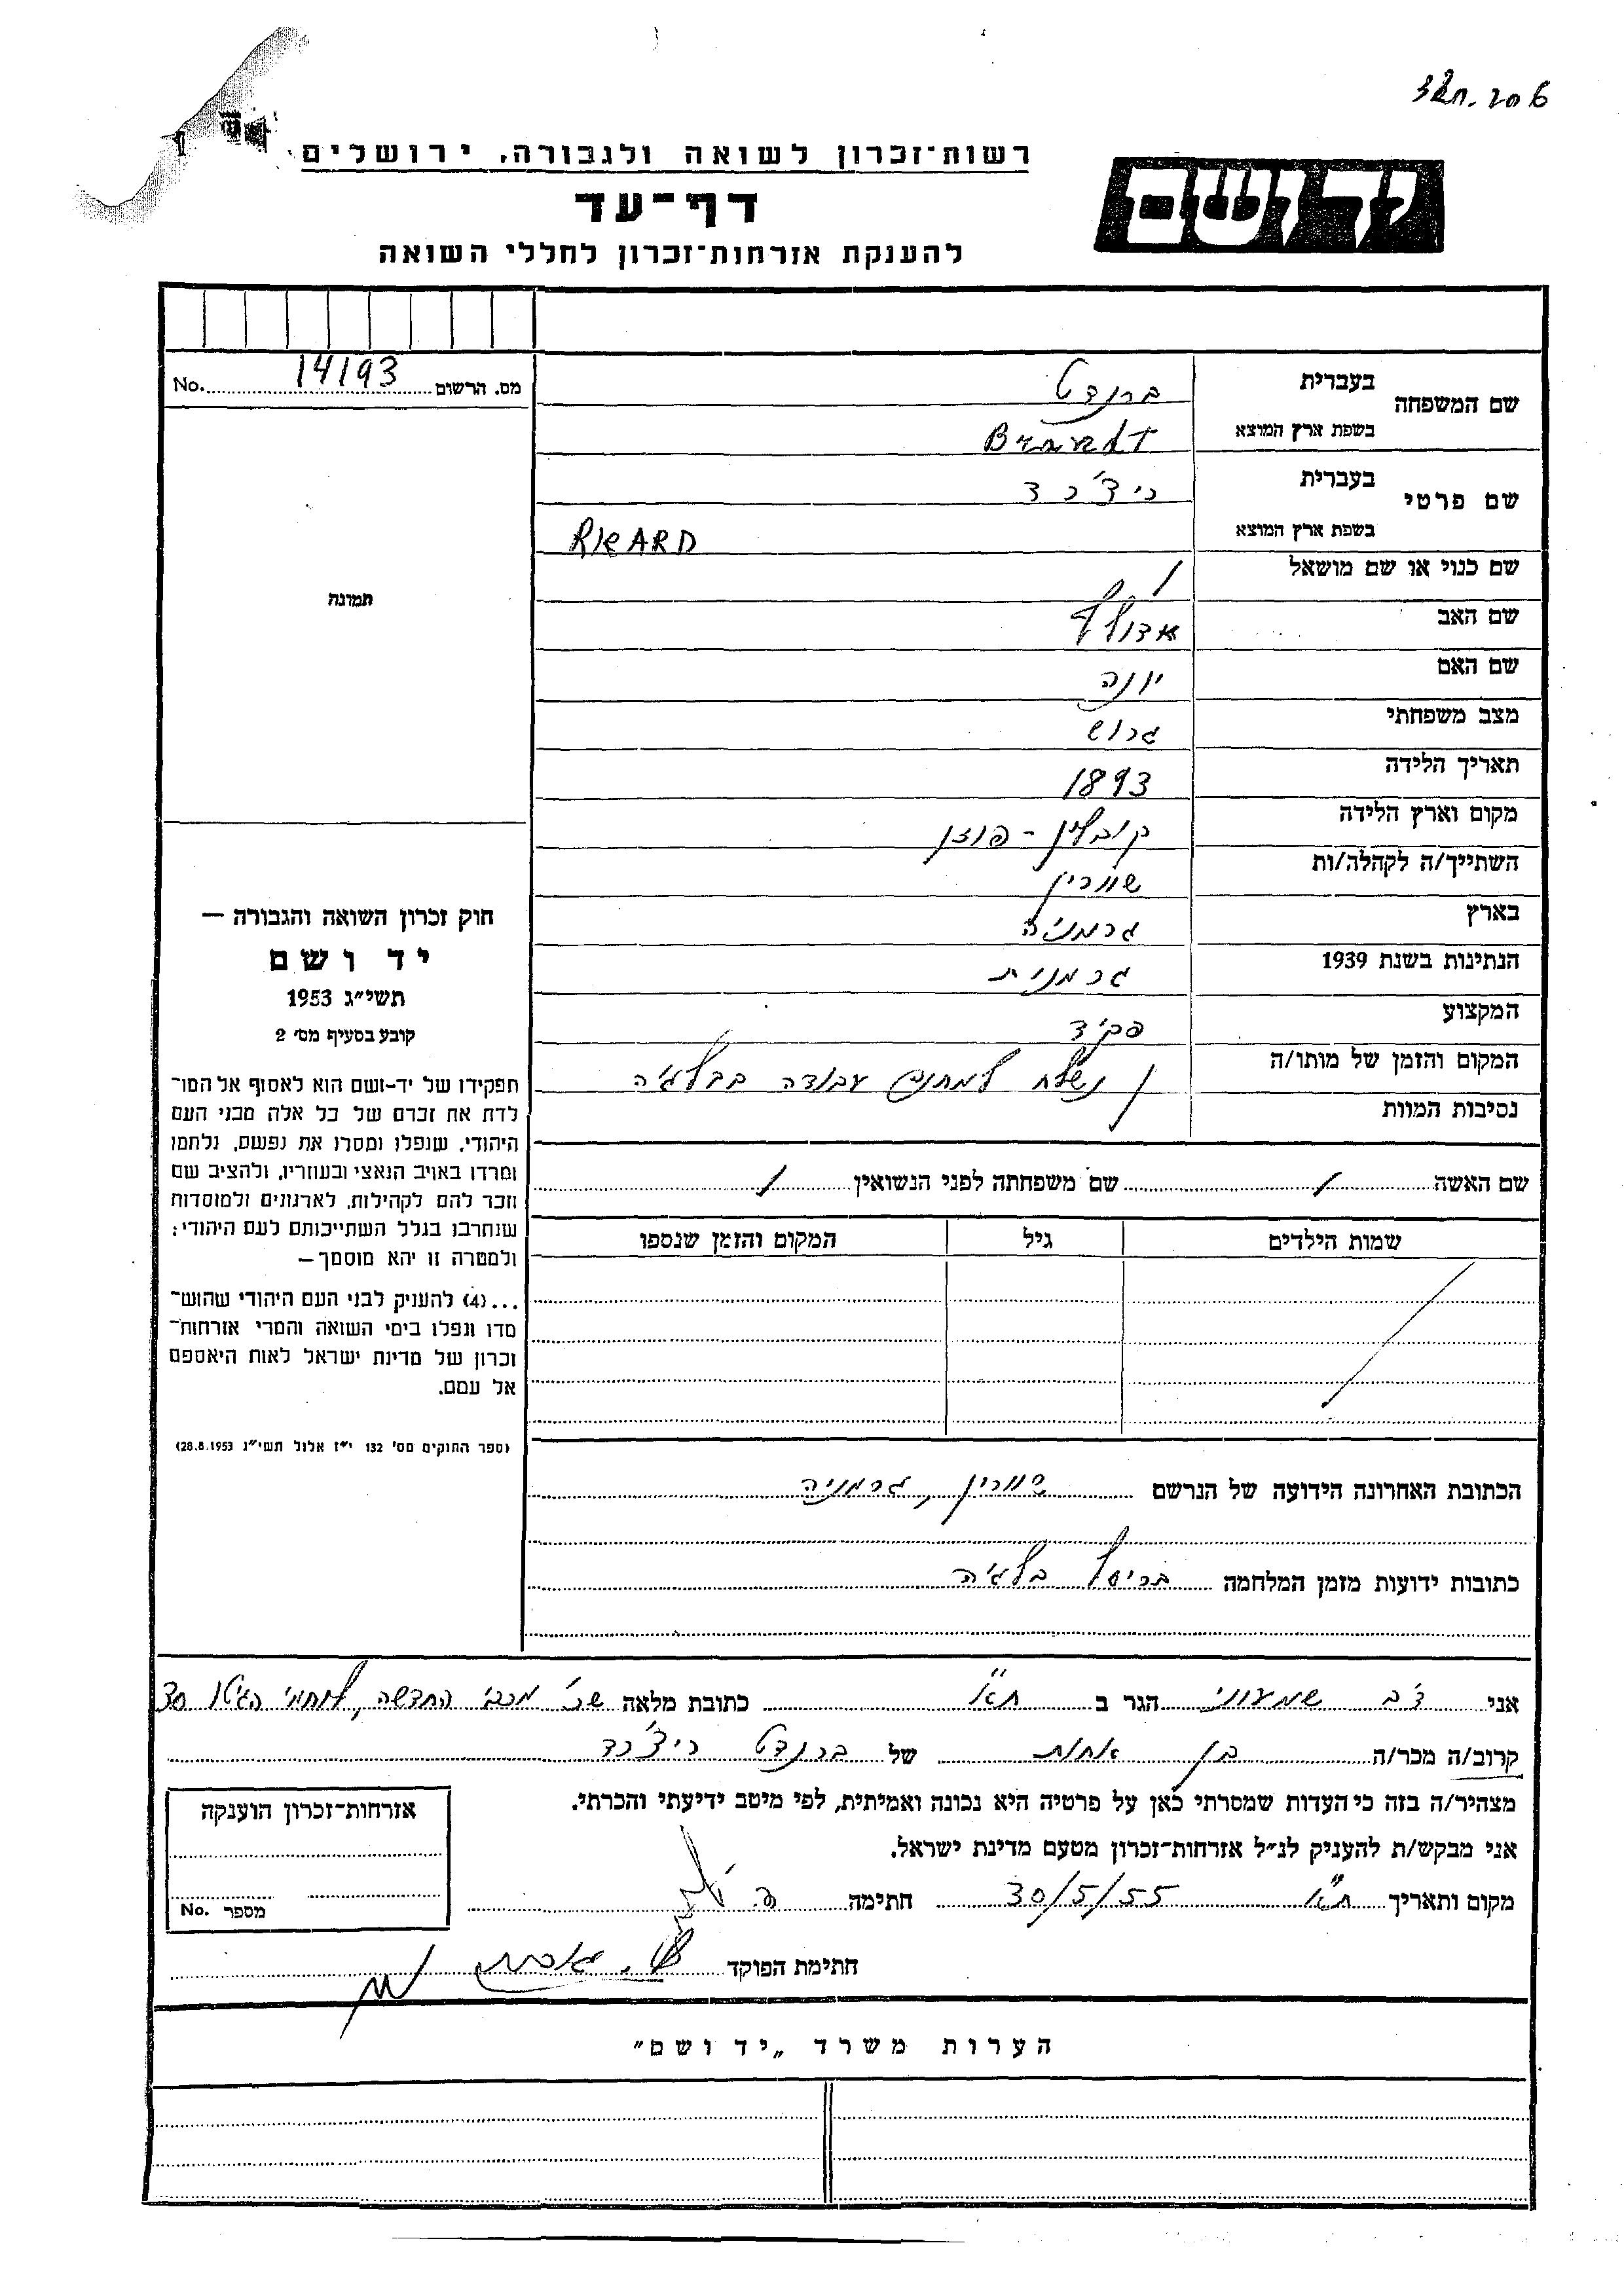 206
רשות־זכרון לשואה ולגבורה, ירושלים
דף־עד
להענקת אזרחות־זכרון לחללי השואה
יד ושם
מס. הרשום 14193 No.
שם המשפחה
בעברית ברנדט
בשפת ארץ המוצא BrandT
שם פרטי
בעברית ריצ'רד
בשפת ארץ המוצא RIKARD
שם כנוי או שם מושאל /
שם האב אדולף
שם האם יונה
מצב משפחתי גרוש
תאריך הלידה 1893
מקום וארץ הלידה קובלין - פוזן
השתייך/ה לקהלה/ות שוורין
בארץ גרמניה
הנתינות בשנת 1939 גרמנית
המקצוע פקיד
המקום והזמן של מותו/ה
נסיבות המוות
נשלח למחנה עבודה בבלגיה
שם האשה / שם משפחתה לפני הנשואין /
שמות הילדים גיל המקום והזמן שנספו
תמונה
חוק זכרון השואה והגבורה —
יד ושם
תשי״ג 1953
קובע בסעיף מס׳ 2
תפקידו של יד-ושם הוא לאסוף אל המו־
לדת את זכרם של כל אלה מבני העם
היהודי, שנפלו ומסרו את נפשם, נלחמו
ומרדו באויב הנאצי ובעוזריו, ולהציב שם
וזכר להם לקהילות, לארגונים ולמוסדות
שנחרבו בגלל השתייכותם לעם היהודי;
ולמטרה זו יהא מוסמך—
...(4) להעניק לבני העם היהודי שהוש־
מדו ונפלו בימי השואה והמרי אזרחות־
זכרון של מדינת ישראל לאות היאספם
אל עמם.
(ספר החוקים מס׳ 132 י״ז אלול תשי״ג 28.8.1953)
הכתובת האחרונה הידועה של הנרשם שוורין, גרמניה
כתובות ידועות מזמן המלחמה בריסל בלגיה
אני דב שמעוני הגר ב ת״א כתובת מלאה שכ' מכבי החדשה, לוחמי הגיטו 30
קרוב/ה מכר/ה בן אחות של ברנדט ריצ'רד
מצהיר/ה בזה כי העדות שמסרתי כאן על פרטיה היא נכונה ואמיתית, לפי מיטב ידיעתי והכרתי.
אני מבקש/ת להעניק לנ״ל אזרחות־זכרון מטעם מדינת ישראל.
מקום ותאריך ת״א 30/5/55 חתימה
חתימת הפוקד
אזרחות־זכרון הוענקה
מספר No.
הערות משרד „יד ושם״